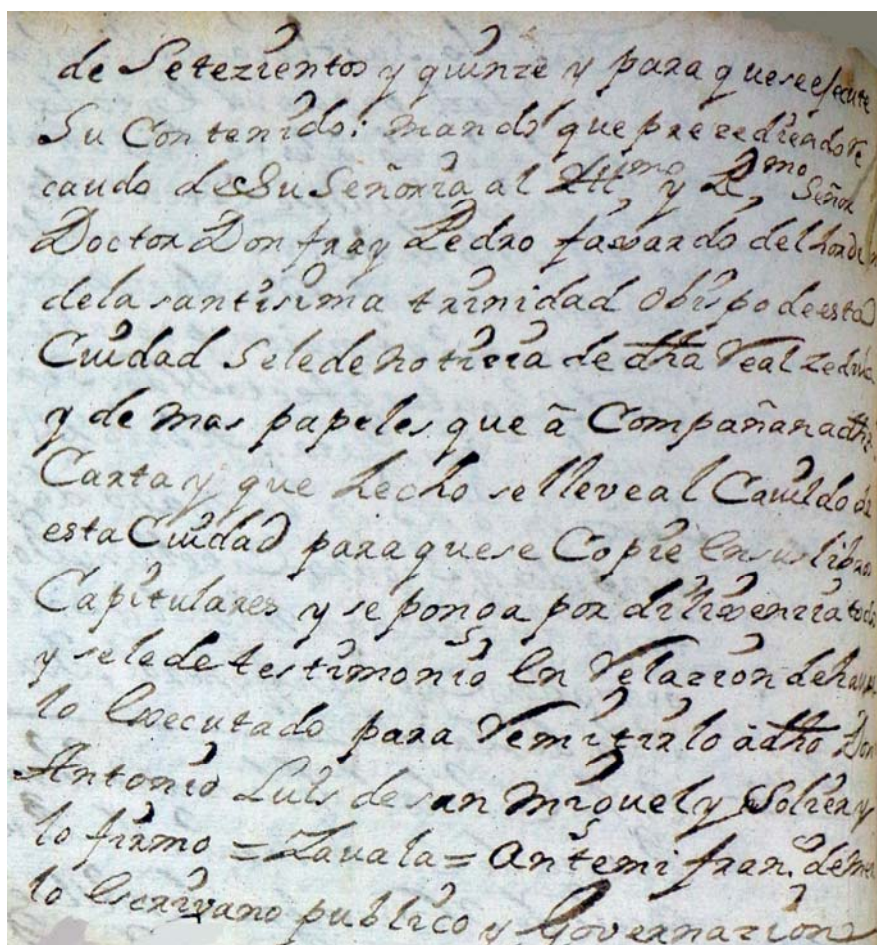 de Setezientos y quinze y para que se ejecute
Su Contenido: mando que prezediendo re
caudo de Su Señoria al Ill,mo y R,mo Señor
Doctor Don fray Pedro faxardo del horden
de la santisima trinidad Obispo de esta
Ciudad Se le de notizia de dha Real Zedula
y de mas papeles que â Compañan a dha
Carta y que hecho se lleve al Cavildo de
esta Ciudad para que se Copie en sus libros
Capitulares y se ponga por dilixenzia todo
y se le de testimonio en Relazion de
lo executado para Remitirlo â dho Don
Antonio Luis de san Miguel y Solier y
lo firmo = Zavala = Ante mi fran.co de Me
lo Escrivano publico y Governazion